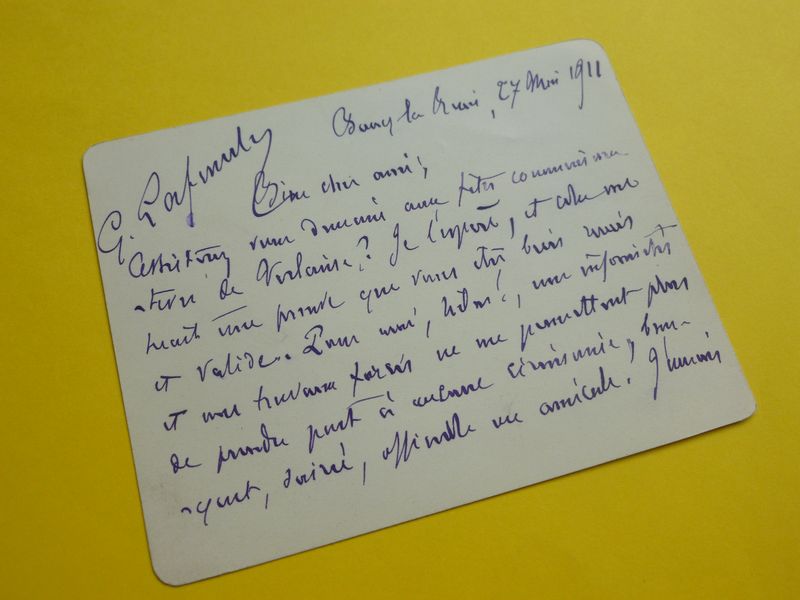 Bourg la Reine, 27 Mai 1911
G. Lafenestre
Bien cher ami,
Assisterez vous demain aux fêtes commémora
-tives de Verlaine? Je l'espère, et cela me
serait une preuve que vous êtes bien remis
et valide. Pour moi, hélas!, mes infirmités
et mes travaux forcés ne me permettent plus
de prendre part à aucune cérémonie, ban-
-quet, soirée, officielle ou amicale. J'eusse